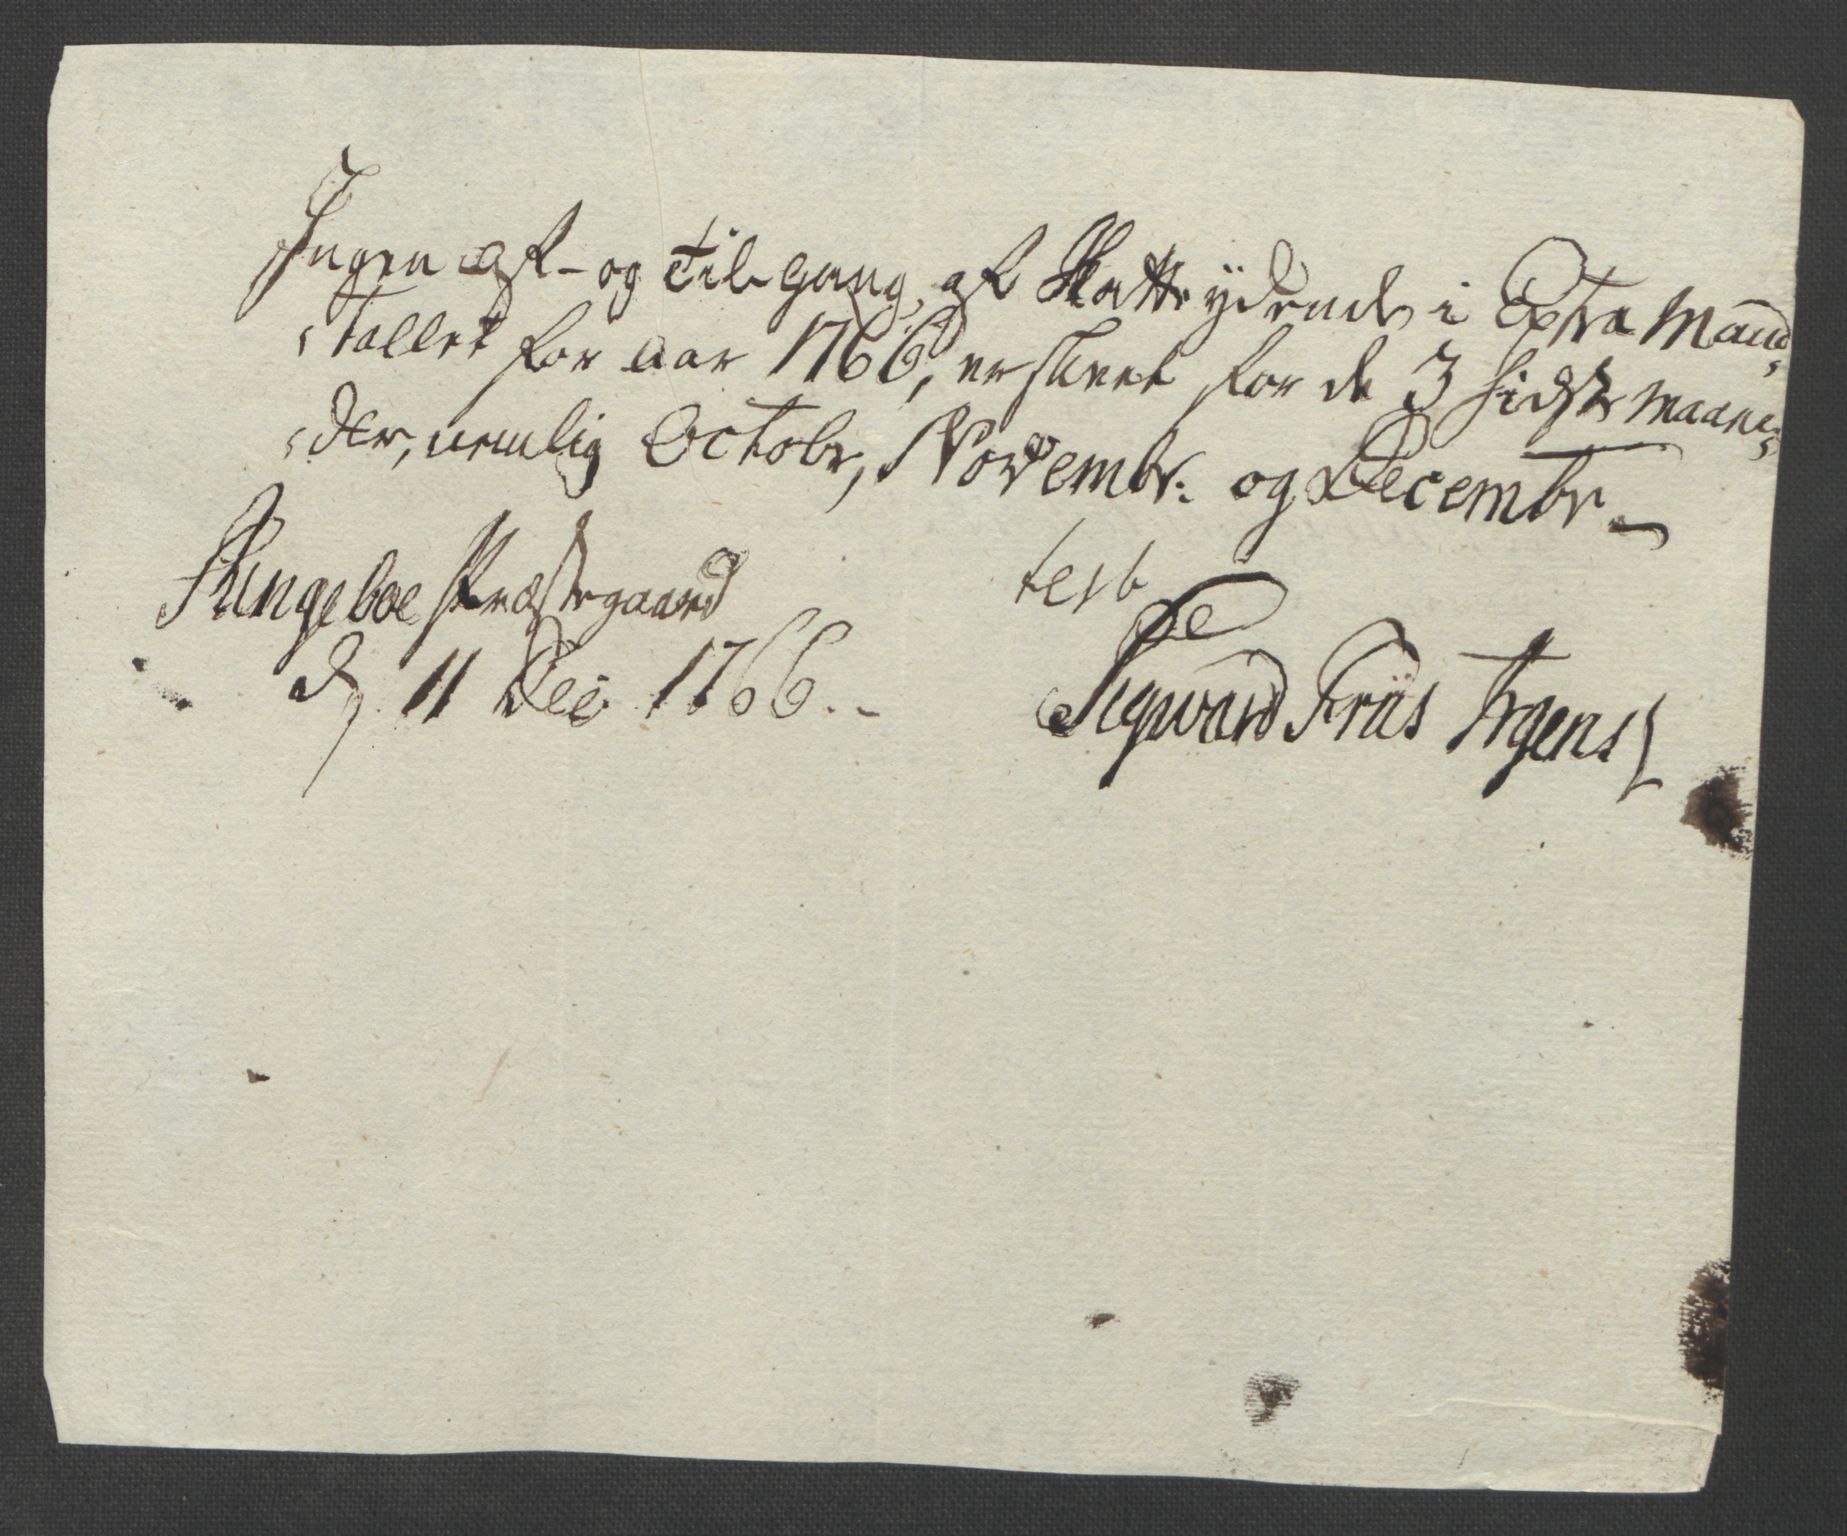 Ingen af- og Tilgang, af Skatteÿdende i Extra Mand„
„tallet for Aar 1766, er skeet for de 3 sidste Maane„
„der, nemlig Octobr, Novembr. og Decembr
test
Præstegaard
d. 11 Dec 1766.
Sigvard Friis Irgens